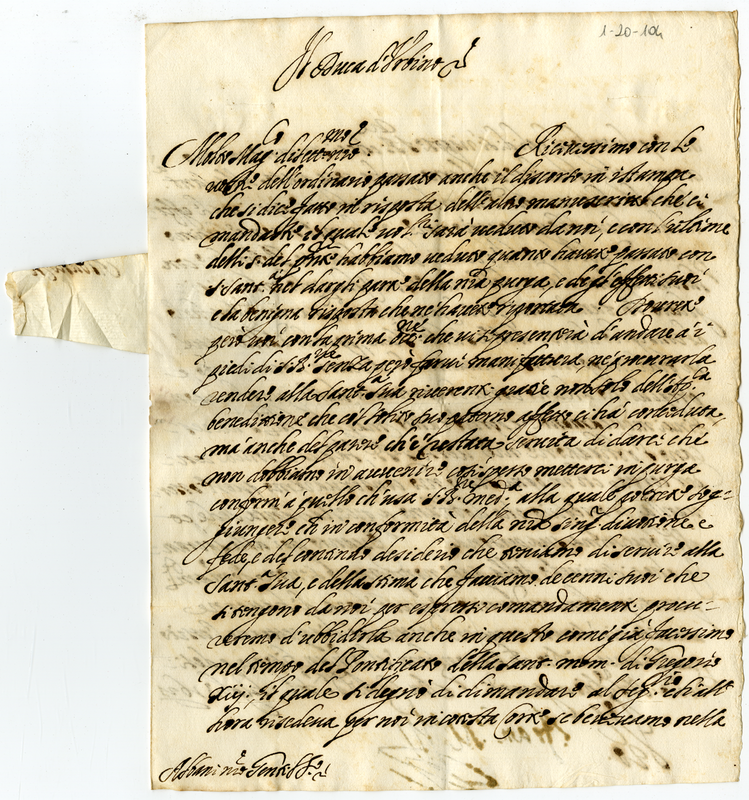 1-20-104
Il Duca d'Urbino
Molto Mag.co dilettmo nro. Ricevessimo con le
vostre dell'ordinario passato anche il discorso in istampa
che si dice fatto in risposta dell'altro manuscritto che ci
mandaste et qual sarà veduto da noi, e con l'ultime
delli 5 del habbiamo veduto quanto havete passato con
S. Sant.tà nel dargli parte della nra purga, e
e la benigna risposta che ne havete riportata. Dovrete
però voi con la prima che vi si presenterà d'andare a i
piedi di S. B.ne senza però farvi manifattura, ne procurarla
rendere alla Sant.tà Sua riverenti gratie non solo dell'
benedittione che col solito suo paterno affetto ci ha conceduta,
ma anche del parere ch'è restata servita di darci che
non dobbiamo in avvenire così spesso metterci in purga
conforme a quello ch'usa S. B.ne med.a alla quale potrete sog-
giungere che in conformità della nra sing.r divotione e
fede, e del continuo desiderio che teniamo di servire alla
Sant.tà Sua, e della stima che facciamo de cenni suoi che
si tengono da noi per espressi comandamenti, procu-
reremo d'ubbidirla anche in questo come già facessimo
nel tempo del Pontificato della Sant. mem. di Gregorio
Xiij. il quale si degnò di dimandare al ch'all'
hora risedeva per noi in cotesta Corte se bevevamo nella
Abbati nro Gent.